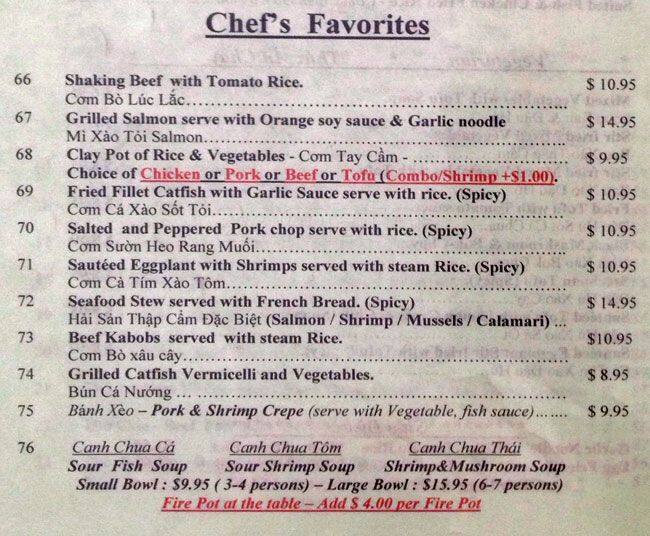 Chef's Favorites
66 Shaking Beef with Tomato Rice. $ 10.95
Cơm Bò Lúc Lắc
67 Grilled Salmon serve with Orange soy sauce & Garlic noodle $ 14.95
Mì Xào Tỏi Salmon
68 Clay Pot of Rice & Vegetables - Cơm Tay Cầm - $ 9.95
Choice of Chicken or Pork or Beef or Tofu (Combo/Shrimp +$1.00).
69 Fried Fillet Catfish with Garlic Sauce serve with rice. (Spicy) $ 10.95
Cơm Cá Xào Sốt Tỏi
70 Salted and Peppered Pork chop serve with rice. (Spicy) $ 10.95
Cơm Sườn Heo Rang Muối
71 Sautéed Eggplant with Shrimps served with steam Rice. (Spicy) $ 10.95
Cơm Cà Tím Xào Tôm
72 Seafood Stew served with French Bread. (Spicy) $ 14.95
Hải Sản Thập Cẩm Đặc Biệt (Salmon / Shrimp / Mussels / Calamari) ...
73 Beef Kabobs served with steam Rice. $10.95
Cơm Bò xâu cây
74 Grilled Catfish Vermicelli and Vegetables. $ 8.95
Bún Cá Nướng ...
75 Bánh Xèo – Pork & Shrimp Crepe (serve with Vegetable, fish sauce) $ 9.95
76 Canh Chua Cá Canh Chua Tôm Canh Chua Thái
Sour Fish Soup Sour Shrimp Soup Shrimp&Mushroom Soup
Small Bowl : $9.95 ( 3-4 persons) – Large Bowl : $15.95 (6-7 persons)
Fire Pot at the table – Add $ 4.00 per Fire Pot